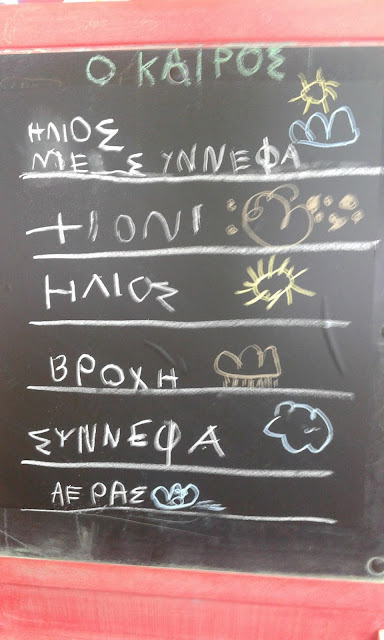 Ο ΚΑΙΡΟΣ
ΗΛΙΟΣ
ΜΕ ΣΥΝΝΕΦΑ
ΧΙΟΝΙ
ΗΛΙΟΣ
ΒΡΟΧΗ
ΣΥΝΝΕΦΑ
ΑΕΡΑΣ